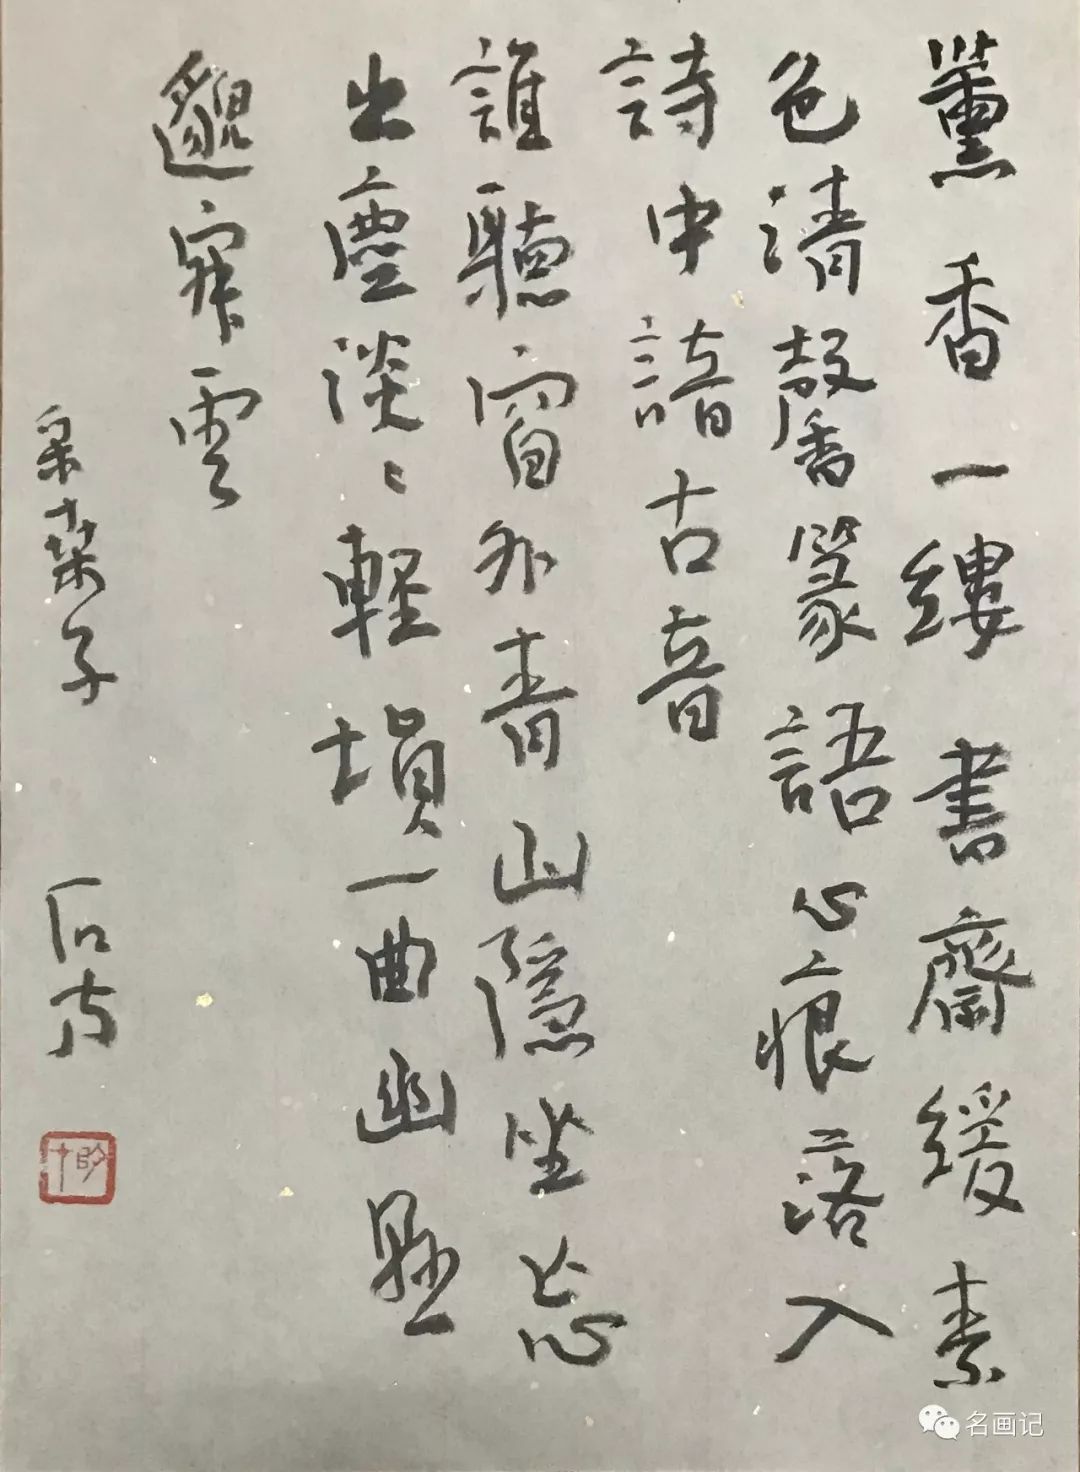 薰香一縷書齋緩素
色清馨篆語心痕落入
詩中諳古音
誰聽窗外青山隱坐忘
出塵淡〻輕塤一曲幽懸
邈寂雲
采桑子 石
名画记